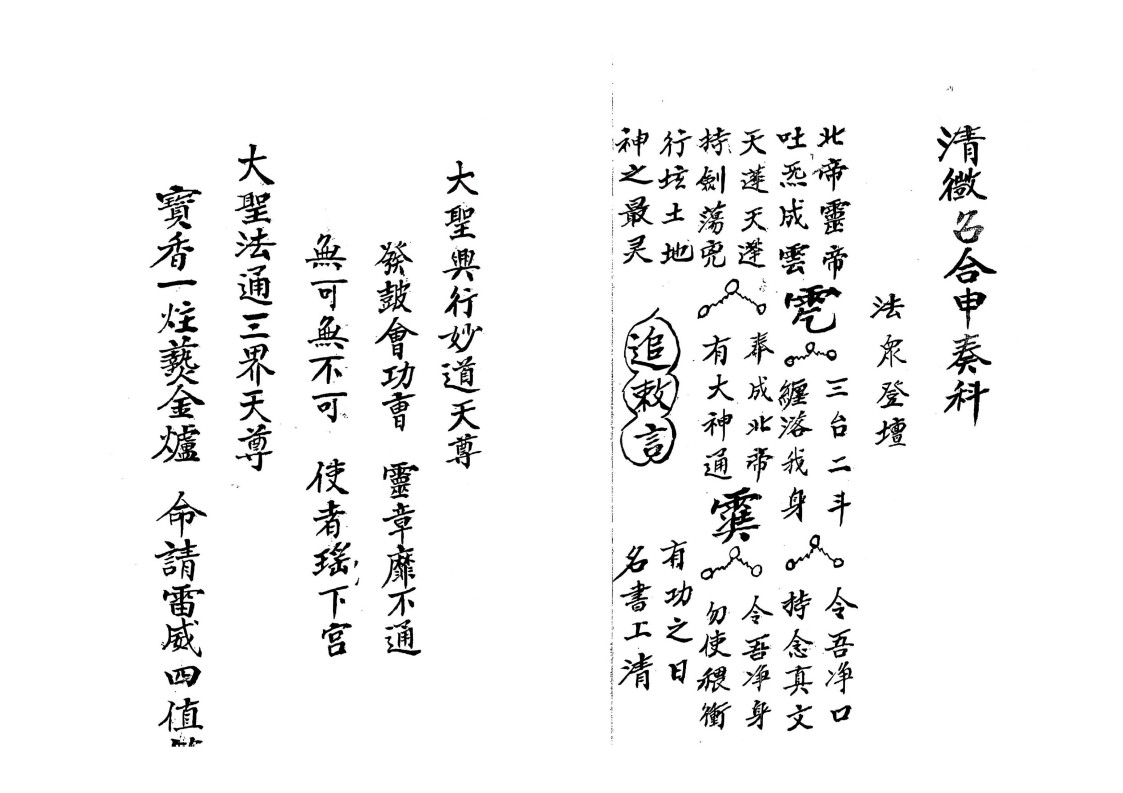 清微召合申奏科
法眾登壇
北帝靈帝 三台二斗 令吾净口
吐炁成雲 纏落我身 持念真文
天蓬天蓬 奉成北帝 令吾净身
持劍蕩兇 有大神通 勿使稷衝
行垓土地 有功之日
神之最灵 追敕言 名書工清
大聖興行妙道天尊
發鼓會功曺 靈章靡不通
無可無不可 使者瑤下宫
大聖法通三界天尊
寳香一炷爇金爐 命請雷威四值